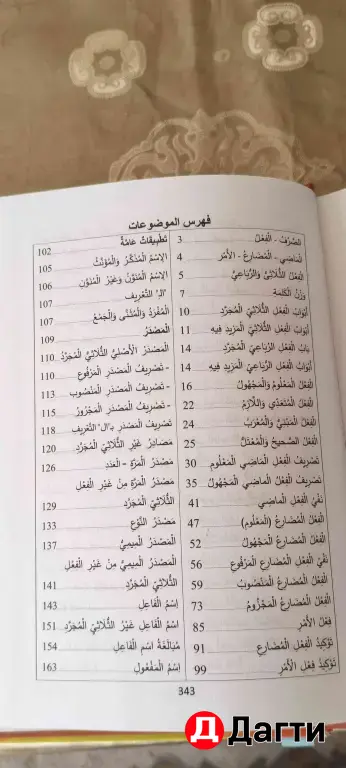 فهرس الموضوعات
الصَّرْفُ - الْفِعْلُ 3
الْمَاضِي - الْمُضَارِعُ - الْأَمْرُ 4
الْفِعْلُ الثُّلَاثِيُّ وَالرُّبَاعِيُّ 5
وَزْنُ الْكَلِمَةِ 7
أَبْوَابُ الْفِعْلِ الثُّلَاثِيِّ الْمُجَرَّدِ 10
أَبْوَابُ الْفِعْلِ الثُّلَاثِيِّ الْمَزِيدِ فِيهِ 11
بَابُ الْفِعْلِ الرُّبَاعِيِّ الْمُجَرَّدِ 14
أَبْوَابُ الْفِعْلِ الرُّبَاعِيِّ الْمَزِيدِ فِيهِ 14
الْفِعْلُ الْمَعْلُومُ وَالْمَجْهُولُ 16
الْفِعْلُ الْمُتَعَدِّي وَاللَّازِمُ 22
الْفِعْلُ الْمَبْنِيُّ وَالْمُعْرَبُ 24
الْفِعْلُ الصَّحِيحُ وَالْمُعْتَلُّ 25
تَصْرِيفُ الْفِعْلِ الْمَاضِي الْمَعْلُومِ 30
تَصْرِيفُ الْفِعْلِ الْمَاضِي الْمَجْهُولِ 35
نَفْيُ الْفِعْلِ الْمَاضِي 41
الْفِعْلُ الْمُضَارِعُ (الْمَعْلُومُ) 47
الْفِعْلُ الْمُضَارِعُ الْمَجْهُولُ 52
نَفْيُ الْفِعْلِ الْمُضَارِعِ الْمَرْفُوعِ 56
الْفِعْلُ الْمُضَارِعُ الْمَنْصُوبُ 59
الْفِعْلُ الْمُضَارِعُ الْمَجْزُومُ 73
فِعْلُ الْأَمْرِ 85
تَوْكِيدُ الْفِعْلِ الْمُضَارِعِ 91
تَوْكِيدُ فِعْلِ الْأَمْرِ 99
تَطْبِيقَاتٌ عَامَّةٌ 102
الِاسْمُ الْمُذَكَّرُ وَالْمُؤَنَّثُ 105
الِاسْمُ الْمُنَوَّنُ وَغَيْرُ الْمُنَوَّنِ 107
"الـ" التَّعْرِيفِ 107
الْمُفْرَدُ وَالْمُثَنَّى وَالْجَمْعُ 107
الْمَصْدَرُ 109
الْمَصْدَرُ الْأَصْلِيُّ الثُّلَاثِيُّ الْمُجَرَّدُ 110
- تَصْرِيفُ الْمَصْدَرِ الْمَرْفُوعِ 110
- تَصْرِيفُ الْمَصْدَرِ الْمَنْصُوبِ 113
- تَصْرِيفُ الْمَصْدَرِ الْمَجْرُورِ 115
تَصْرِيفُ الْمَصْدَرِ بـ"الـ" التَّعْرِيفِ 118
مَصَادِرُ غَيْرِ الثُّلَاثِيِّ الْمُجَرَّدِ 120
مَصْدَرُ الْمَرَّةِ - الْعَدَدِ 126
مَصْدَرُ الْمَرَّةِ مِنْ غَيْرِ الْفِعْلِ
الثُّلَاثِيِّ الْمُجَرَّدِ 129
مَصْدَرُ النَّوْعِ 133
الْمَصْدَرُ الْمِيمِيُّ 137
الْمَصْدَرُ الْمِيمِيُّ مِنْ غَيْرِ الْفِعْلِ
الثُّلَاثِيِّ الْمُجَرَّدِ 141
اِسْمُ الْفَاعِلِ 143
اِسْمُ الْفَاعِلِ غَيْرِ الثُّلَاثِيِّ الْمُجَرَّدِ 151
مُبَالَغَةُ اسْمِ الْفَاعِلِ 154
اِسْمُ الْمَفْعُولِ 163
343
Дагти